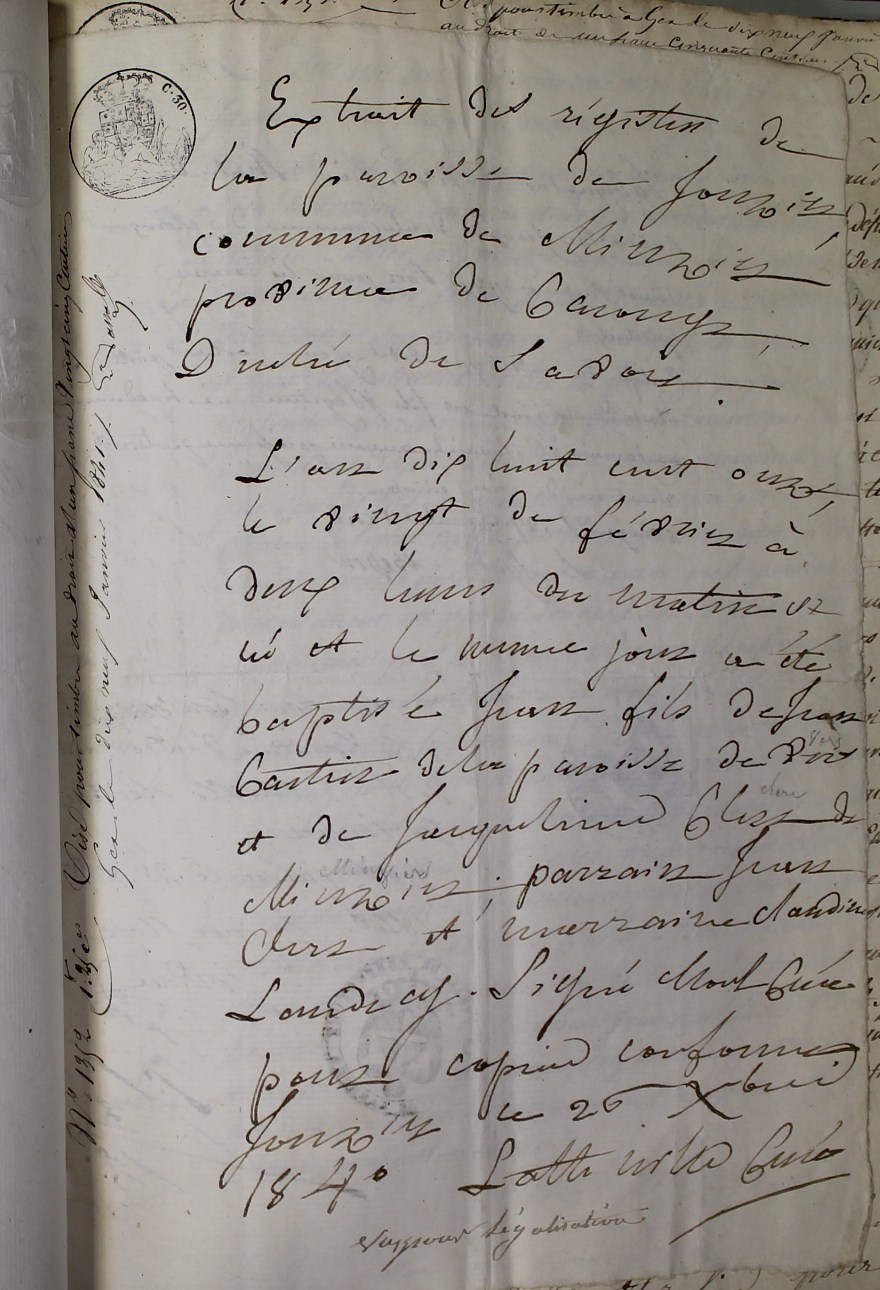 C. 30.
Extrait des régistres de
la paroisse de Jonzier,
commune de Minzier,
province de Carouge,
Duché de Savoie.
L'an dix huit cent onze,
le vingt de février à
deux heures du matin est
né et le meme jour a été
baptisé Jean fils de Jean
Bastien de la paroisse de Vers
Vers
et de Jacqueline Clerc de
clerc
Minzier
Minzier; parrain Jean
Clerc et marraine Claudine
Landecy. Signé Curé
pour copie conforme
Jonzier ce 26 Xbre
1840 Curé
vu pour légalisation
N° 1352 Visé pour timbre au droit d'un franc vingt cinq centimes
Gex le dix neuf Janvier 1841
pour timbre à Gex le dix neuf Janvier
au droit de un franc cinquante centimes